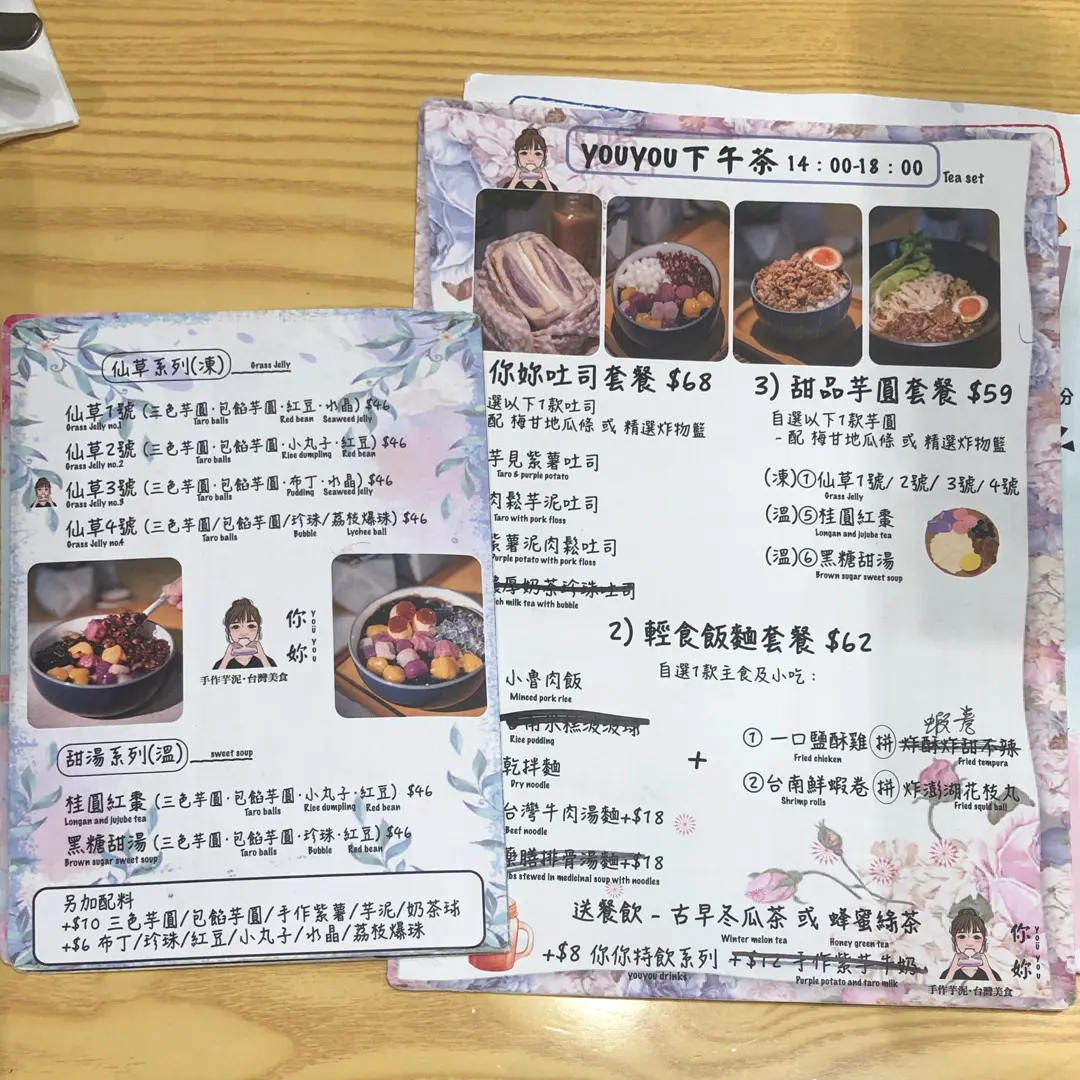 仙草系列(凍)
Grass Jelly
仙草1號 (三色芋圓·包餡芋圓·紅豆·水晶) $46
Grass Jelly no.1 Taro balls Red bean Seaweed jelly
仙草2號 (三色芋圓·包餡芋圓·小丸子·紅豆) $46
Grass Jelly no.2 Taro balls Rice dumpling Red bean
仙草3號 (三色芋圓·包餡芋圓·布丁·水晶) $46
Grass Jelly no.3 Taro balls Pudding Seaweed jelly
仙草4號 (三色芋圓/包餡芋圓/珍珠/荔枝爆珠) $46
Grass Jelly no.4 Taro balls Bubble Lychee ball
你妳
YOU YOU
手作芋泥·台灣美食
甜湯系列(溫)
sweet soup
桂圓紅棗 (三色芋圓·包餡芋圓·小丸子·紅豆) $46
Longan and jujube tea Taro balls Rice dumpling Red bean
黑糖甜湯 (三色芋圓·包餡芋圓·珍珠·紅豆) $46
Brown sugar sweet soup Taro balls Bubble Red bean
另加配料
+$10 三色芋圓/包餡芋圓/手作紫薯/芋泥/奶茶球
+$6 布丁/珍珠/紅豆/小丸子/水晶/荔枝爆珠
youyou下午茶 14:00-18:00
Tea set
你妳吐司套餐 $68
選以下1款吐司
配 梅甘地瓜條 或 精選炸物籃
芋見紫薯吐司
Taro & purple potato
肉鬆芋泥吐司
Taro with pork floss
紫薯泥肉鬆吐司
Purple potato with pork floss
厚奶茶珍珠吐司
milk tea with bubble
3) 甜品芋圓套餐 $59
自選以下1款芋圓
- 配 梅甘地瓜條 或 精選炸物籃
(凍)①仙草1號/ 2號/ 3號/ 4號
Grass Jelly
(溫)⑤桂圓紅棗
Longan and jujube tea
(溫)⑥黑糖甜湯
Brown sugar sweet soup
2) 輕食飯麵套餐 $62
自選1款主食及小吃:
小魯肉飯
Minced pork rice
Rice pudding
乾拌麵
Dry noodle
台灣牛肉湯麵+$18
Beef noodle
藥膳排骨湯麵+$18
stewed in medicinal soup with noodles
+
蝦卷
① 一口鹽酥雞 拼 炸酥炸甜不辣
Fried chicken Fried tempura
② 台南鮮蝦卷 拼 炸澎湖花枝丸
Shrimp rolls Fried squid ball
送餐飲 - 古早冬瓜茶 或 蜂蜜綠茶
Winter melon tea Honey green tea
+$8 你你特飲系列 +$12 手作紫芋牛奶
youyou drinks Purple potato and taro milk
你妳
YOU YOU
手作芋泥·台灣美食
分